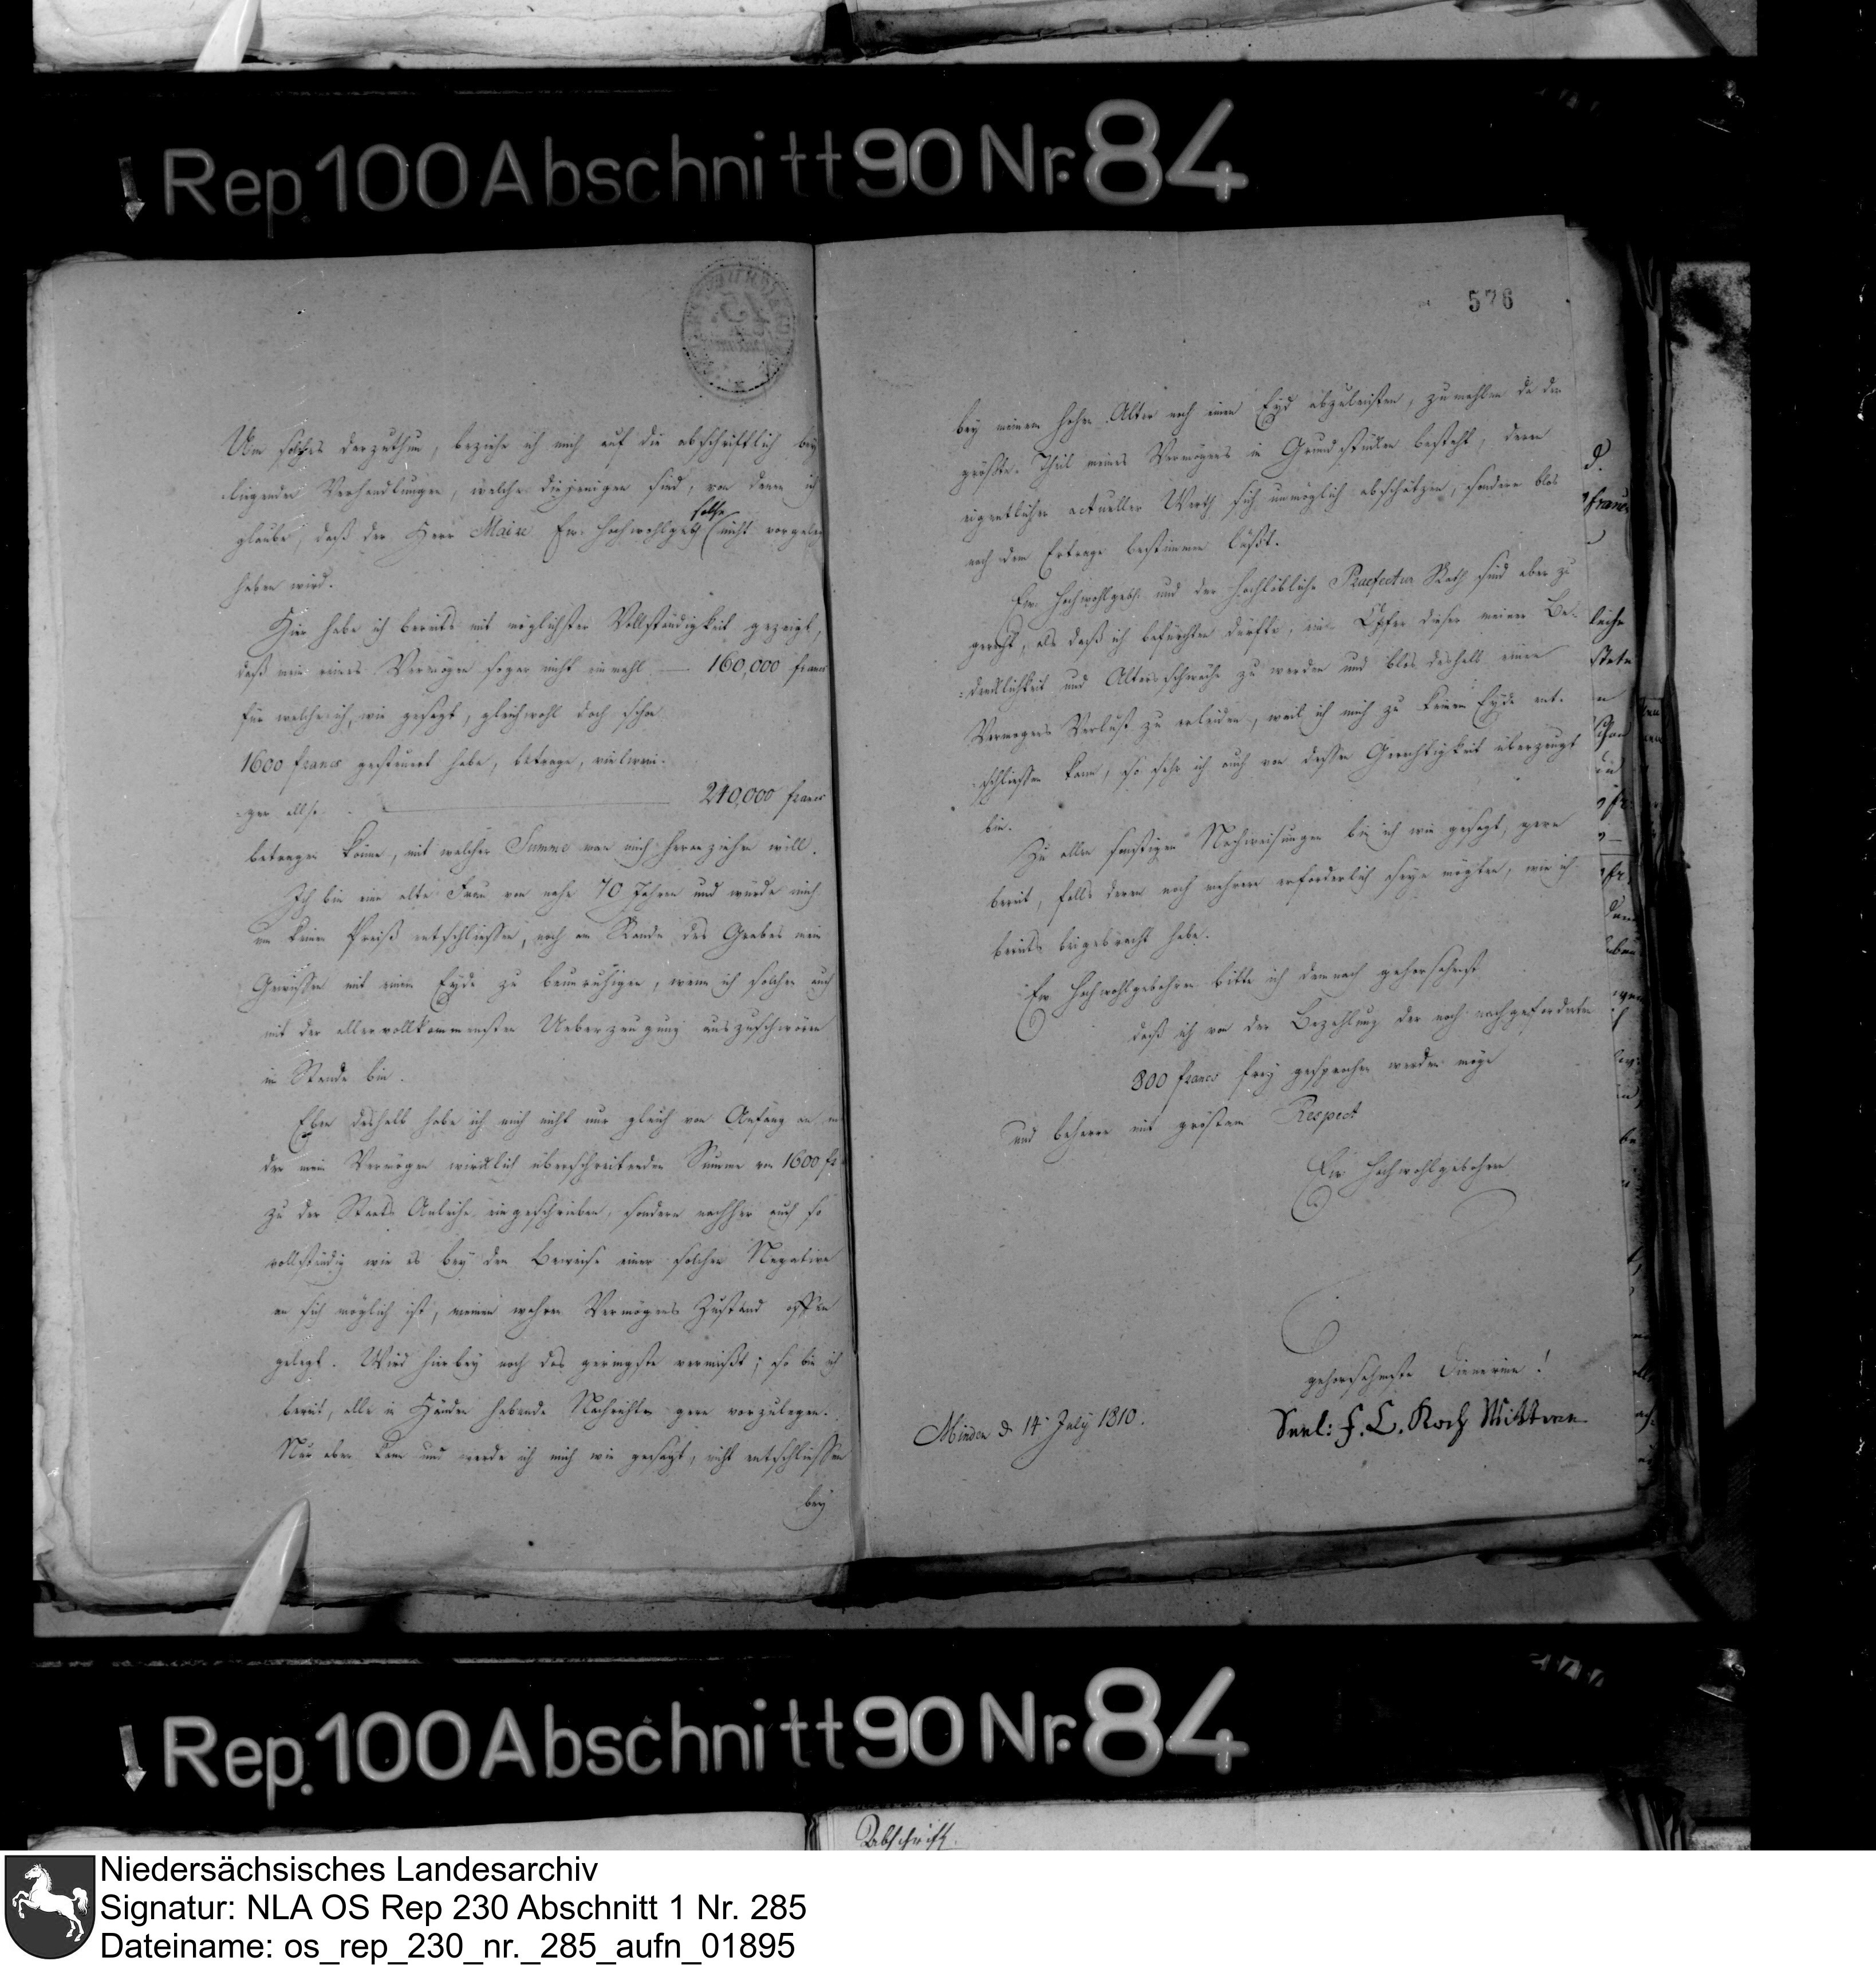 Rep. 100 Abschnitt 90 Nr. 84
Um solches darzuthun, beziehe ich mich auf die abschriftlich bey
liegenden Verhandlungen, welche diejenigen sind, von denen ich
glaube, daß der Herr Maire Ew. Hochwohlgeb. selbe nicht vorgelegt
haben wird.
Hier habe ich bereits mit möglichster Vollständigkeit gezeigt,
daß mein reines Vermögen sogar nicht einmahl — 160,000 francs
für welche ich, wie gesagt, gleichwohl doch schon
1600 francs gesteuert habe, betrage, vielweni-
ger also 240,000 francs
betragen könne, mit welcher Summe man mich heranziehen will.
Ich bin eine alte Frau von nahe 70 Jahren und würde mich
um keinen Preiß entschliessen, noch am Rande des Grabes mein
Gewissen mit einem Eyde zu beunruhigen, wenn ich solchen auch
mit der allervollkommensten Ueberzeugung auszuschwören
im Stande bin.
Eben deshalb habe ich mich nicht nur gleich von Anfang an mit
der mein Vermögen wirklich überschreitenden Summe von 1600 fr
zu der Staats Anleihe eingeschrieben, sondern nachher auch so
vollständig wie es bey dem Beweise einer solchen Negative
an sich möglich ist, meinen wahren Vermögens Zustand offen
gelegt. Wird hierbey noch das geringste vermißt; so bin ich
bereit, alle in Händen habende Nachrichten gern vorzulegen.
Nur aber kann und werde ich mich wie gesagt, nicht entschliessen
bey
576
bey meinem hohen Alter noch einen Eyd abzuleisten, zumahlen da der
größte Theil meines Vermögens in Grundstücken besteht, deren
eigentlicher actueller Werth sich unmöglich abschätzen, sondern blos
nach dem Ertrage bestimmen läßt.
Ew. Hochwohlgeb. und der Hochlöbliche Praefectur Rath sind aber zu
gerecht, als daß ich befürchten dürfte, ein Opfer dieser meiner Be-
denklichkeit und Altersschwäche zu werden und blos deshalb einen
Vermögens Verlust zu erleiden, weil ich mich zu keinem Eyde ent-
schliessen kann, so sehr ich auch von dessen Gerechtigkeit überzeugt
bin.
Zu allen sonstigen Nachweisungen bin ich wie gesagt, gern
bereit, falls deren noch mehrere erforderlich seyn mögten, wie ich
bereits beigebracht habe.
Ew Hochwohlgebohren bitte ich demnach gehorsahmst
daß ich von der Bezahlung der noch nachgeforderten
800 francs frey gesprochen werden möge
und beharre mit größtem Respect
Ew Hochwohlgebohren
gehorsahmste Dienerinn!
Minden d. 14 July 1810.
Seel: F. C. Koch Wittwe
Rep. 100 Abschnitt 90 Nr. 84
Abschrift.
Niedersächsisches Landesarchiv
Signatur: NLA OS Rep 230 Abschnitt 1 Nr. 285
Dateiname: os_rep_230_nr._285_aufn_01895